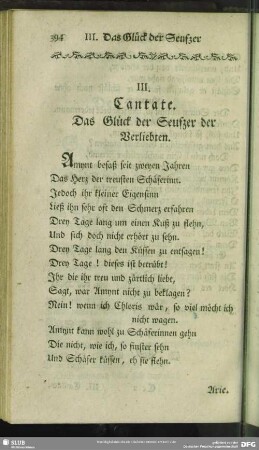 394 III. Das Glück der Seufzer
III.
Cantate.
Das Glück der Seufzer der
Verliebten.
Amynt besaß seit zweyen Jahren
Das Herz der treusten Schäferinn.
Jedoch ihr kleiner Eigensinn
Ließ ihn sehr oft den Schmerz erfahren
Drey Tage lang um einen Kuß zu flehn,
Und sich doch nicht erhört zu sehn.
Drey Tage lang den Küssen zu entsagen!
Drey Tage! dieses ist betrübt!
Ihr die ihr treu und zärtlich liebt,
Sagt, war Amynt nicht zu beklagen?
Nein! wenn ich Chloris wär, so viel möcht ich
nicht wagen.
Amynt kann wohl zu Schäferinnen gehn
Die nicht, wie ich, so finster sehn
Und Schäfer küssen, eh sie flehn.
Arie.
SLUB
DFG